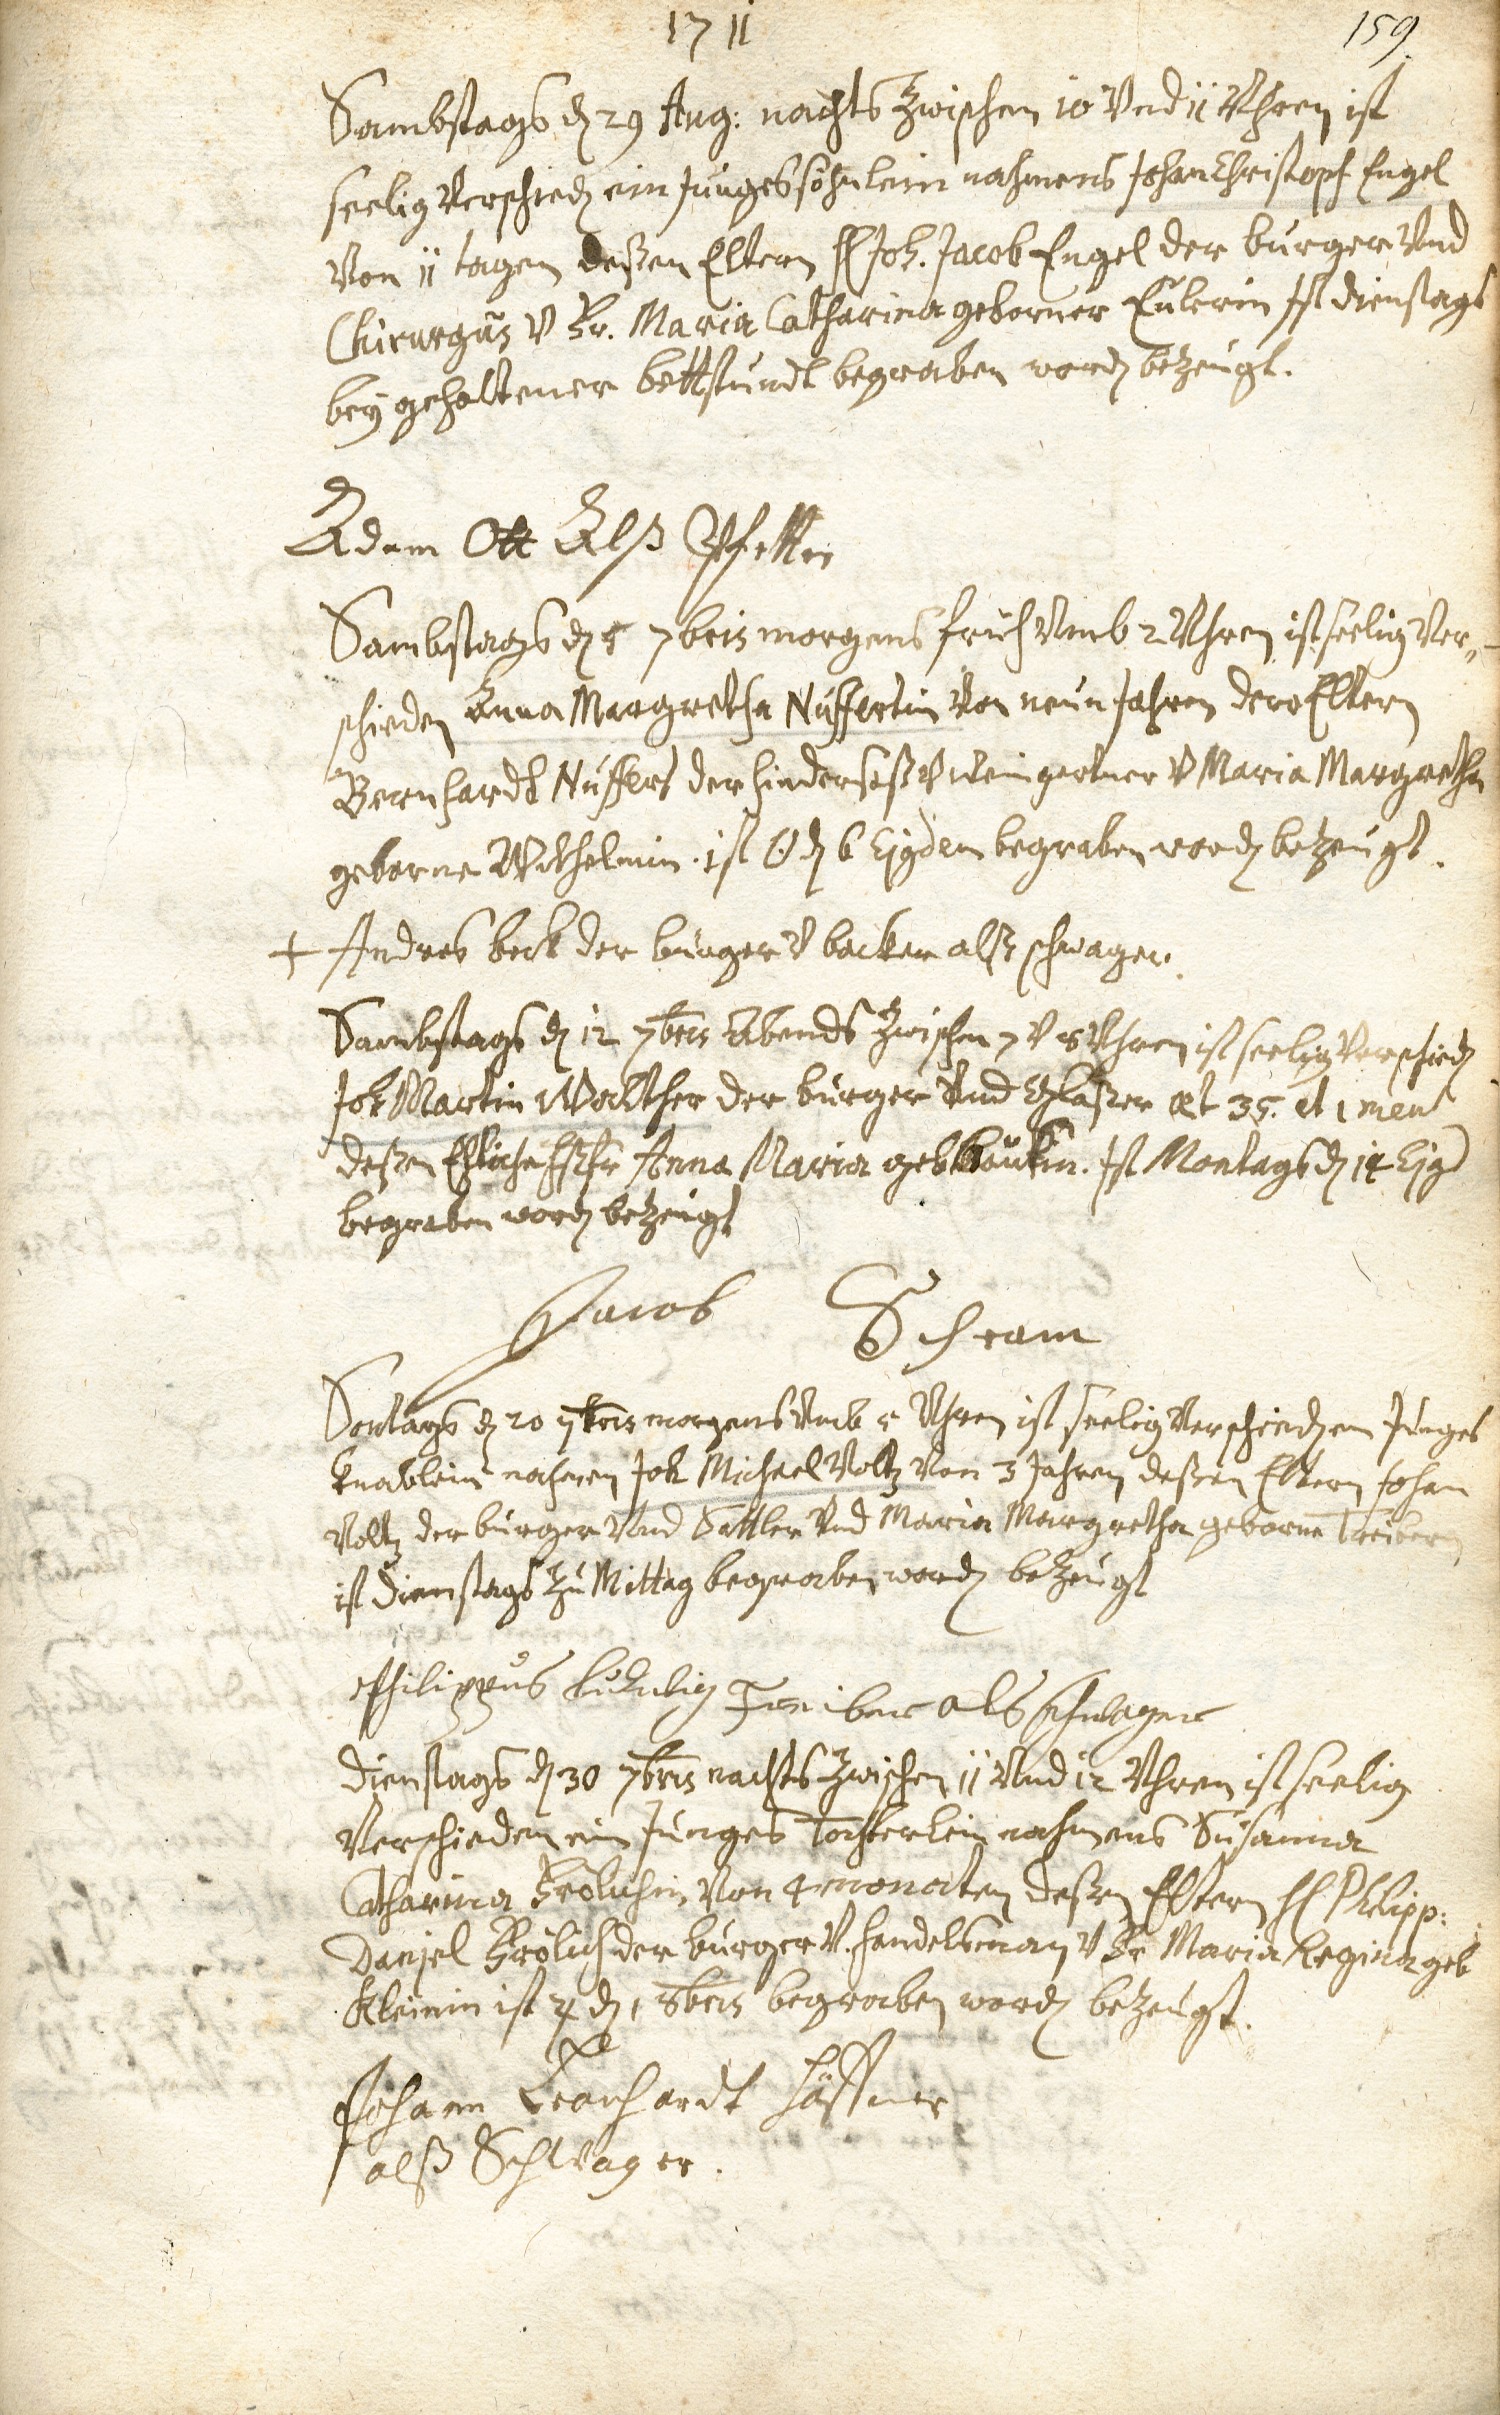 1711
159.
Sambstags d 29 Aug: nachts zwischen 10 Vnd 11 Vhren ist
seelig Verschied ein junges söhnlein nahmens Johan Christopf Engel
Von 11 tagen deßen Eltern H Joh. Jacob Engel der burger Vnd
Chirurgus V Fr. Maria Catharina geborner Eulerin Ist dienstags
bey gehaltener bettstundt begraben word bezeugt.
Adam Ott Alß Pfetter
Sambstags d 5 7bris morgens früh Vmb 2 Vhren ist seelig Ver-
schieden Anna Margretha Nufferin Von neun Jahren dero Eltern
Bernhardt Nuffers der hindersaß V weingertner V Maria Margretha
geborne Wilhelmin. ist d 6 Ejsdem begraben word bezeugt.
+ Andres beck der burger V becker alß schwager.
Sambstags d 12 7bris Abends zwischen 7 V 8 Vhren ist seelig Verschied
Joh Martin Walther der burger Vnd Glaßer æt 35. et 1 men
deßen Ehliche Haßfr Anna Maria geb Bäurin. Ist Montags d 14 Ejsd
begraben word bezeugt
Jacob Schram
Sontags d 20 7bris morgens Vmb 5 Vhren ist seelig Verschieden ein Junges
knäblein nahmen Joh Michael Voltz Von 3 Jahren deßen Eltern Johan
Voltz der burger Vnd Sattler Vnd Maria Margretha geborne Treiberin
ist dienstags zu Mittag begraben word bezeugt
Philippus Ludwig Treiber als schwager
dienstags d 30 7bris nachts zwischen 11 Vnd 12 Vhren ist seelig
Verschieden ein Junges Töchterlein nahmens Susanna
Catharina Frölichin Von 4 monaten deßen Eltern H Philipp:
Daniel Frölich der burger V. handelsman V Fr Maria Regina geb
Kleinin ist ♃ d 1 8bris begraben word bezeugt.
Johann Leonhardt Häffner
alß Schwager.